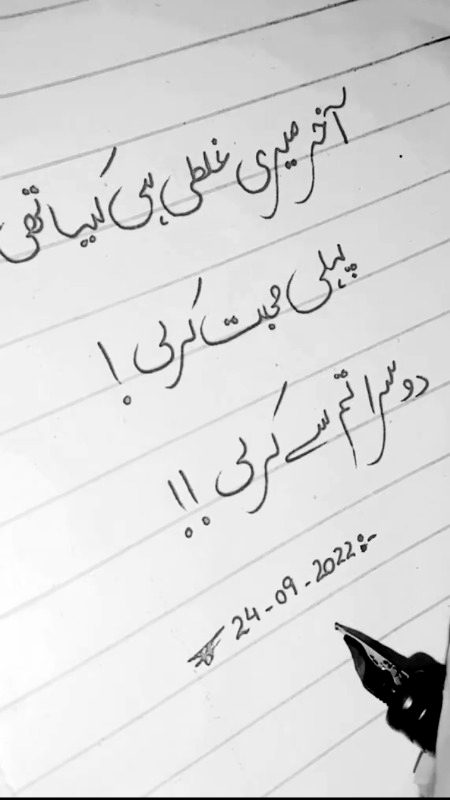 آخر میری غلطی ہی کیا تھی
پہلی محبت کرلی !
دوسرا تم سے کرلی !!
24-09-2022:-